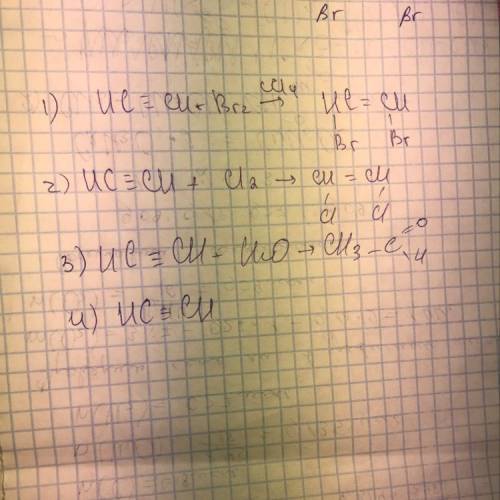 Br Br
1) HC ≡ CH + Br2 CCl4 → HC = CH
Br Br
2) HC ≡ CH + Cl2 → CH = CH
Cl Cl
3) HC ≡ CH + H2O → CH3 – C =O
H
4) HC ≡ CH